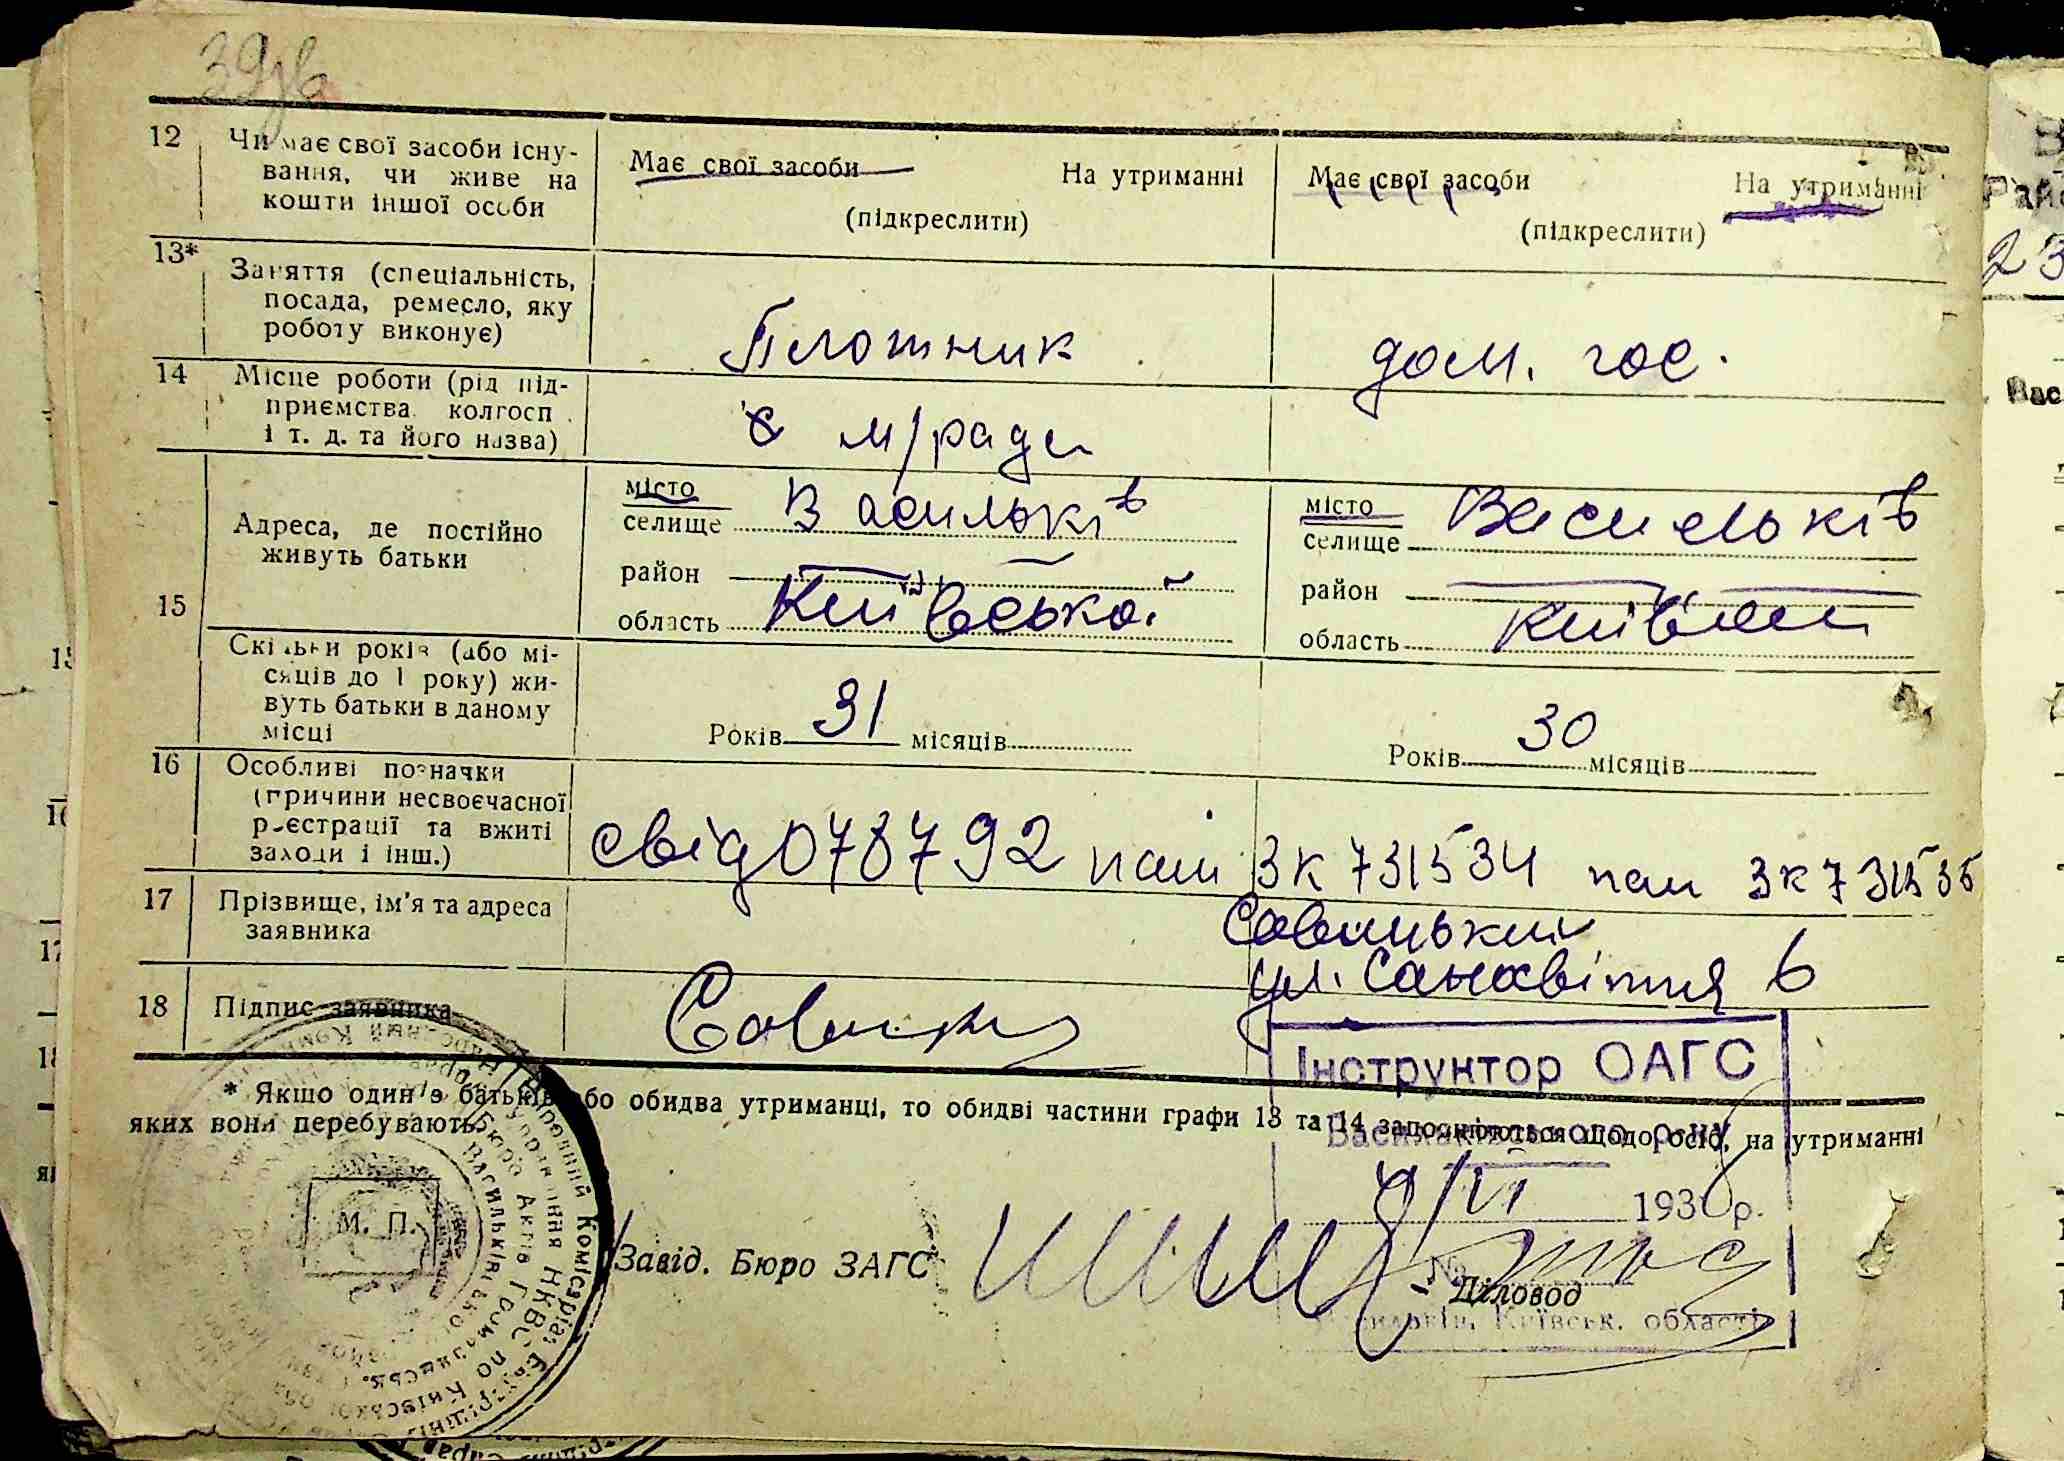 39 зв
12 Чи має свої засоби існу-
вання, чи живе на
кошти іншої особи
Має свої засоби На утриманні
(підкреслити)
Має свої засоби На утриманні
(підкреслити)
13* Заняття (спеціальність,
посада, ремесло, яку
роботу виконує)
Плотник
дом. гос.
14 Місце роботи (рід під-
приємства, колгосп
і т. д. та його назва)
м/ради
15 Адреса, де постійно
живуть батьки
місто Васильків
селище
район
область Київської
місто Васильків
селище
район
область
Скільки років (або мі-
сяців до 1 року) жи-
вуть батьки в даному
місці
Років 31 місяців
Років 30 місяців
16 Особливі позначки
(причини несвоєчасної
реєстрації та вжиті
заходи і інш.)
свід 078792 паш ЗК 731534 паш ЗК 731535
17 Прізвище, ім'я та адреса
заявника
Савицький
ул. 6
18 Підпис заявника
Інструктор ОАГС
* Якщо один з батьків або обидва утриманці, то обидві частини графи 13 та 14 заповнюються щодо осіб, на утриманні
яких вони перебувають.
Васильківського
9/VI 193 р.
М. П.
Завід. Бюро ЗАГС
Діловод
Васильків, Київськ. області